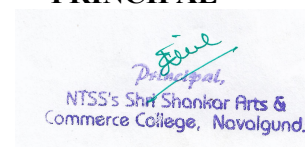 PRINCIPAL
Principal,
NTSS's Shri Shankar Arts &
Commerce College, Navalgund.